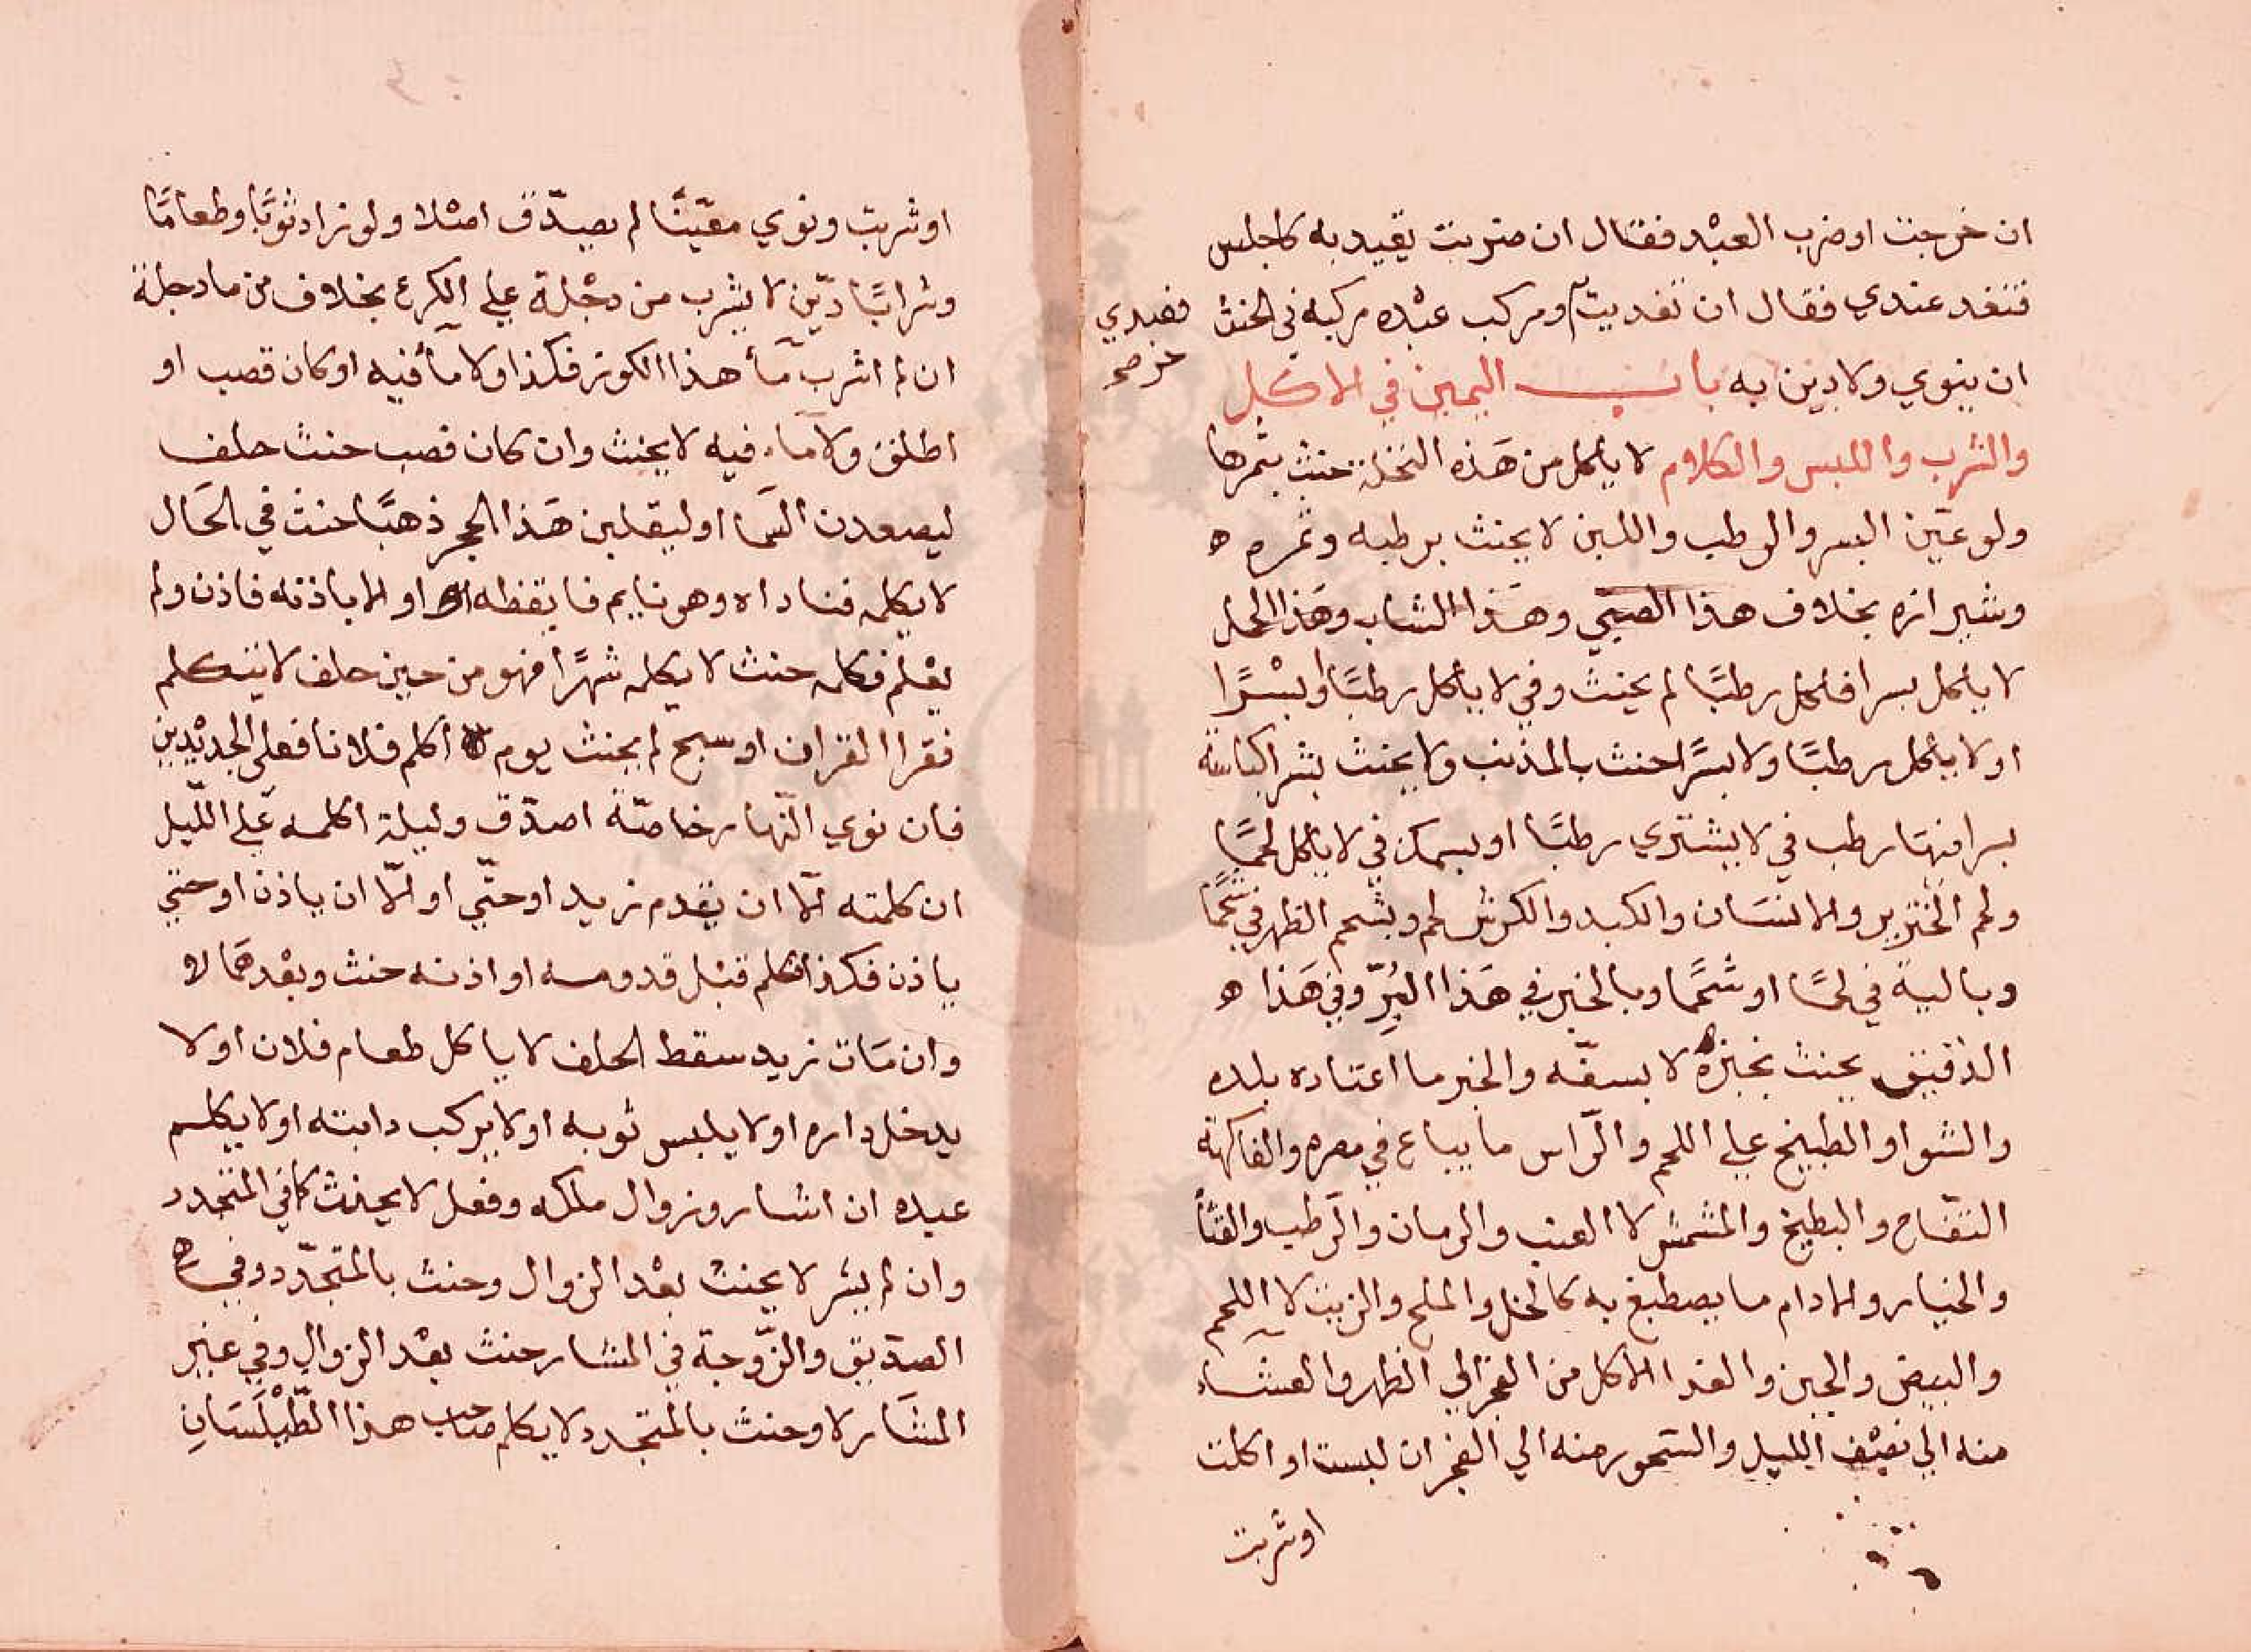 ان خرجت او ضرب العبد فقال ان ضربت تقيد به كاجلس
فتغد عندي فقال ان تغديت ومركب عبده مركبه في الحنث
فعبدي
حر صح
ان ينوي ولا دين به باب اليمين في الاكل
والشرب واللبس والكلام لا ياكل من هَذه النخلة حنث بثمرها
ولو عيّن البسر والرطب واللبن لا يحنث برطبه وتمره ه
وشيرازه بخلاف هذا الصبي وهَذا الشاب وهَذا الحمل
لا ياكل بسرا فاكل رطبًا لم يحنث وفي لا ياكل رطبًا او بسْرًا
او لا ياكل رطبًا ولا بسرًا حنث بالمذنب ولا يحنث بشرا كباسة
بسر فيها رطب في لا يشتري رطبًا او بسمك في لا ياكل لحمًا
ولحم الخنزير والانسَان والكبد والكرش لحم وبشحم الظهر في شحمًا
وبالية في لحمًا او شحمًا وبالخبز في هَذا البُرِّ وفي هَذا ه
الدقيق يحنث بخبزه لا بسفّه والخبز ما اعتاده بلده
والشوا والطبيخ علي اللحم والرّاس ما يباع في مصره والفاكهة
التفّاح والبطيخ والمشمش لا العنب والرمان والرَطب والقثّأ
والخيار والادام ما يصطبغ به كالخل والملح والزيت لا اللحم
والبيض والجبن والغدا الاكل من الفجر الي الظهر والعشَاء
منه الي نصْف الليل والسّحور منه الي الفجر ان لبست او اكلت
او شربت
او شربت ونوي معيّنًا لم يصدّق اصْلا ولو زاد ثوبًا وطعامًا
وشرابًا ديّن لا يشرب من دجْلة علي الكرع بخلاف من ما دجلة
ان لم اشرب مآء هذا الكوز فكذا ولا مآء فيه او كان فصب او
اطلق ولا مَاء فيه لا يحنث وان كان فصب حنث حلف
ليصعدن السَما او ليقلبن هَذا الحجر ذهبًا حنث في الحَال
لا يكلمه فناداه وهو نايم فايقظه او الا باذنه فاذن ولم
يعْلم فكلمه حنث لا يكلمه شهرًا فهو من حين حلف لا يتكلم
فقرا القران او سبح لم يحنث يوم اكلم فلانا فعلي الجديْدين
فان نوي النّهار خاصّة صدّق وليلة اكلمه علي اللّيل
ان كلمته الّا ان يقدم زيد او حتّي او الّا ان ياذن او حتي
ياذن فكذا فكلم قبْل قدومه او اذنه حنث وبعْدهمَا لا
وان مَات زيد سقط الحلف لا ياكل طعام فلان او لا
يدخل داره او لا يلبس ثوبه او لا يركب دابته او لا يكلم
عبده ان اشار وزوال ملكه وفعل لا يحنث كما في المتجدد
وان لم يشر لا يحنث بعْد الزوال وحنث بالمتجدّد وفي
الصديق والزّوجة في المشار حنث بعْد الزوال وفي غير
المشَار لا وحنث بالمتجدد لا يكلم صاحب هذا الطّيْلَسَانِ